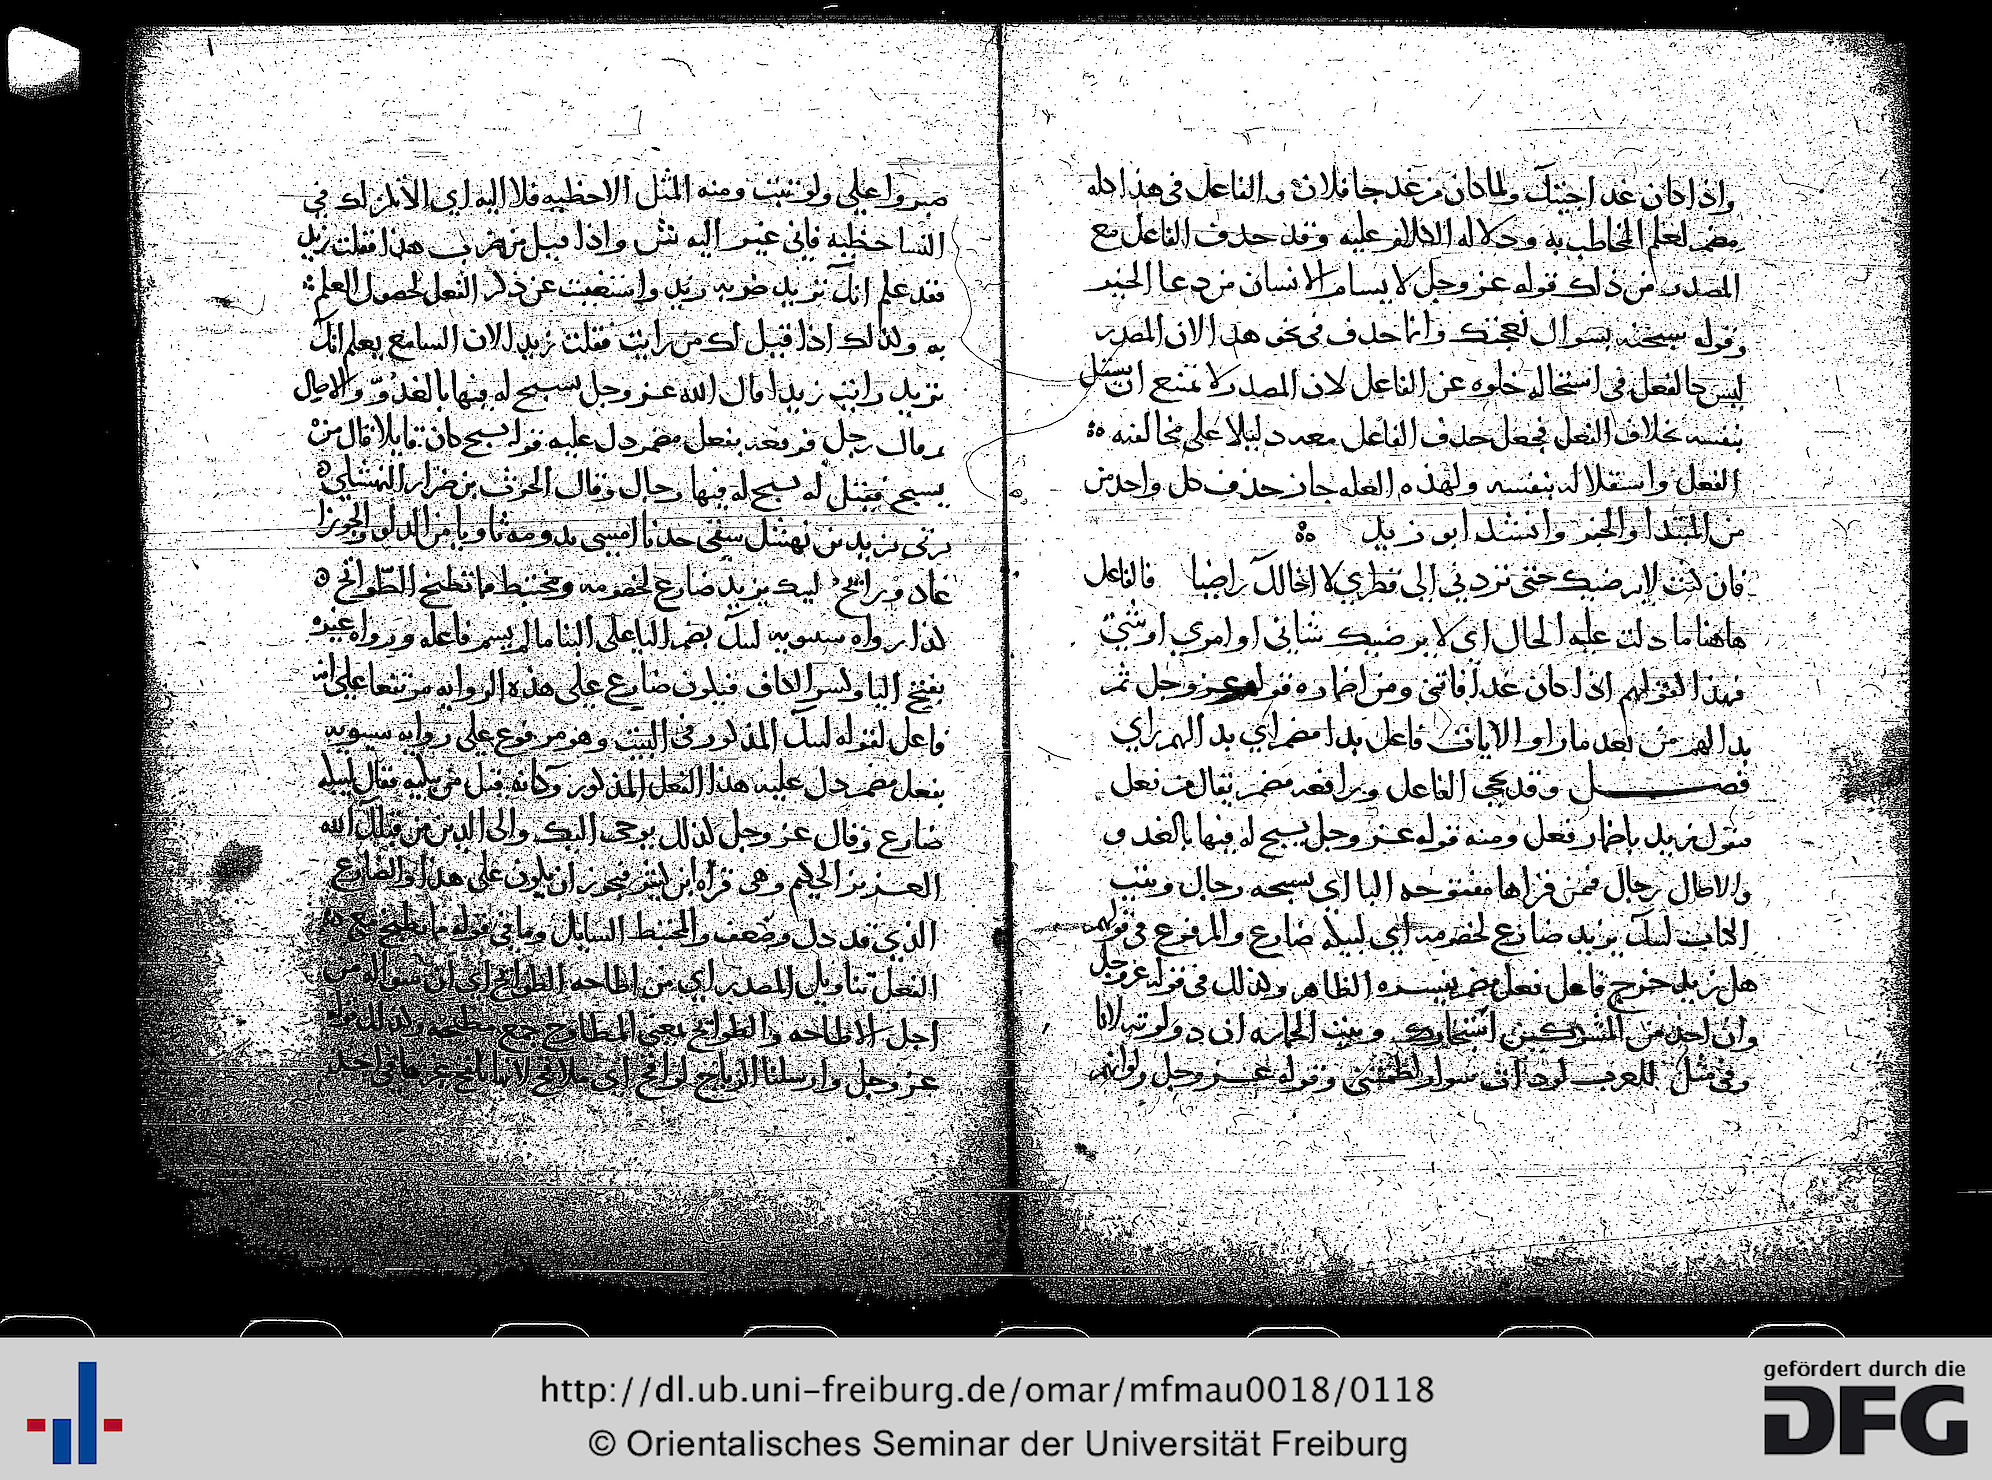 واذا كان غد اجيتك ولما كان من غد جا فلان والفاعل في هذا كله
مضمر لعلم المخاطب به ودلاله الكلام عليه وقد حذف الفاعل مع
المصدر من ذلك قوله عز وجل لا يسام الانسان من دعا الخير
وقوله سبحنه بسوال نعجتك وانما حذف في نحو هذا لان المصدر
ليس كالفعل في استحاله خلوه عن الفاعل لان المصدر لا تمتنع ان يستقل
بنفسه بخلاف الفعل فجعل حذف الفاعل معه دليلا على مخالفته
الفعل واستقلاله بنفسه ولهذه العله جاز حذف كل واحد من
من المبتدا والخبر وانشد ابو زيد
فان كنت لا يرضيك حتى تردني الى قطري لا اخالك راضيا فالفاعل
هاهنا ما دلت عليه الحال اي لا يرضيك شاني او امري او شي
فهذا كقولهم اذا كان غدا فاتني ومن اضماره قوله عز وجل ثم
بدا لهم من بعد ما راوا الايات فاعل بدا مضمر اي بدا لهم راي
فصل وقد يجي الفاعل ورافعه مضمر يقال من فعل
فتقول زيد باضمار فعل ومنه قوله عز وجل يسبح له فيها بالغدو
والاصال رجال فمن قراها مفتوحه البا اي يسبحه رجال وبيت
الكتاب ليبك يزيد ضارع لخصومه اي ليبكه ضارع والمرفوع في قولهم
هل زيد خرج فاعل فعل مضمر يفسره الظاهر وكذلك في قوله عز وجل
وان احد من المشركين استجارك وبيت الحماسه ان ذو لوثه لانا
وفي مثل للعرب لو ذات سوار لطمتني وقوله عز وجل ولو انهم
صبروا على ولو ثبت ومنه المثل الا حظيه فلا اليه اي الا تكن لك في
النسا حظيه فاني غير اليه ش واذا قيل من ضرب هذا فقلت زيد
فقد علم انك تريد ضربه زيد واستغنيت عن ذكر الفعل لحصول العلم
به وكذلك اذا قيل لك من رايت فقلت زيدا لان السامع يعلم انك
تريد رايت زيدا قال الله عز وجل يسبح له فيها بالغدو والاصال
ثم قال رجل فرفعه بفعل مضمر دل عليه قوله يسبح كان قايلا قال من
يسبح فقيل له يسبح له فيها رجال وقال الحرث بن ضرار النهشلي
يرثي يزيد بن نهشل سقى جدثا امسى بدومه ثاويا من الدلو والجوزا
غاد ورائح ليبك يزيد ضارع لخصومه ومختبط مما تطيح الطوائح
كذا رواه سيبويه ليبك بضم اليا على البنا ما لم يسم فاعله ورواه غيره
بفتح اليا وكسر الكاف فيكون ضارع على هذه الروايه مرتفعا على انه
فاعل لقوله ليبك المذكور في البيت وهو مرفوع على روايه سيبويه
بفعل مضمر دل عليه هذا الفعل المذكور وكانه قيل من يبكيه فقال ليبكه
ضارع وقال عز وجل كذلك يوحى اليك والى الذين من قبلك الله
العزيز الحكيم وهي قراه ابن كثير فيجوز ان يكون على هذا والضارع
الذي قد ذل وضعف والمختبط السايل وما في قوله مما تطيح مع
الفعل بتاويل المصدر اي من اطاحه الطوائح اي ان سواله من
اجل الاطاحه والطوائح بمعنى المطاوح جمع مطيحه وكذلك قوله
عز وجل وارسلنا الرياح لواقح اي ملاقح